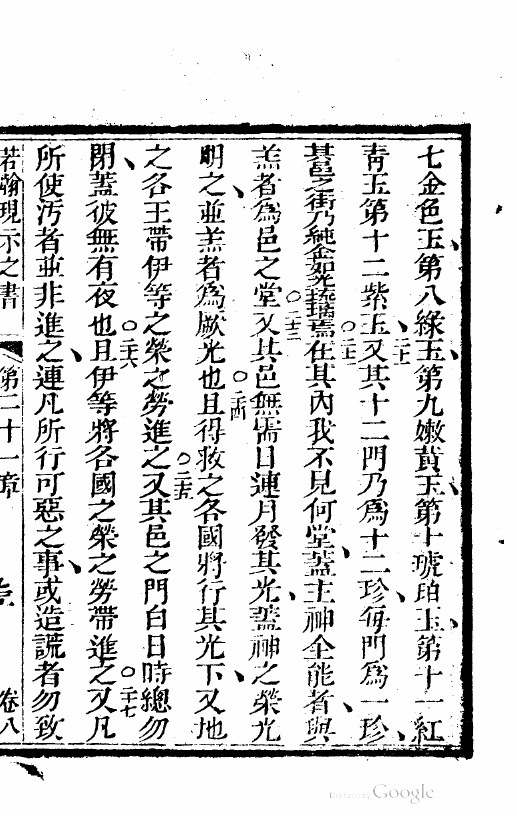 七金色玉、第八綠玉、第九嫩黃玉、第十琥珀玉、第十一紅
青玉第十二紫玉、○二十一又其十二門乃為十二珍、每門為一珍、
其邑之街乃純金如光琉璃焉○二十二在其內我不見何堂、蓋主神全能者與、
羔者為邑之堂○二十三又其邑無需日連月發其光、蓋神之榮光
明之、並羔者為厥光也○二十四且得救之各國將行其光下、又地
之各王帶伊等之榮之勞進之○二十五又其邑之門白日時總勿
閉、蓋彼無有夜也○二十六且伊等將各國之榮之勞帶進之○二十七又凡
所使污者並非進之、連凡所行可惡之事、或造謊者勿致
若翰現示之書 第二十一章 卷八
Digitized by Google